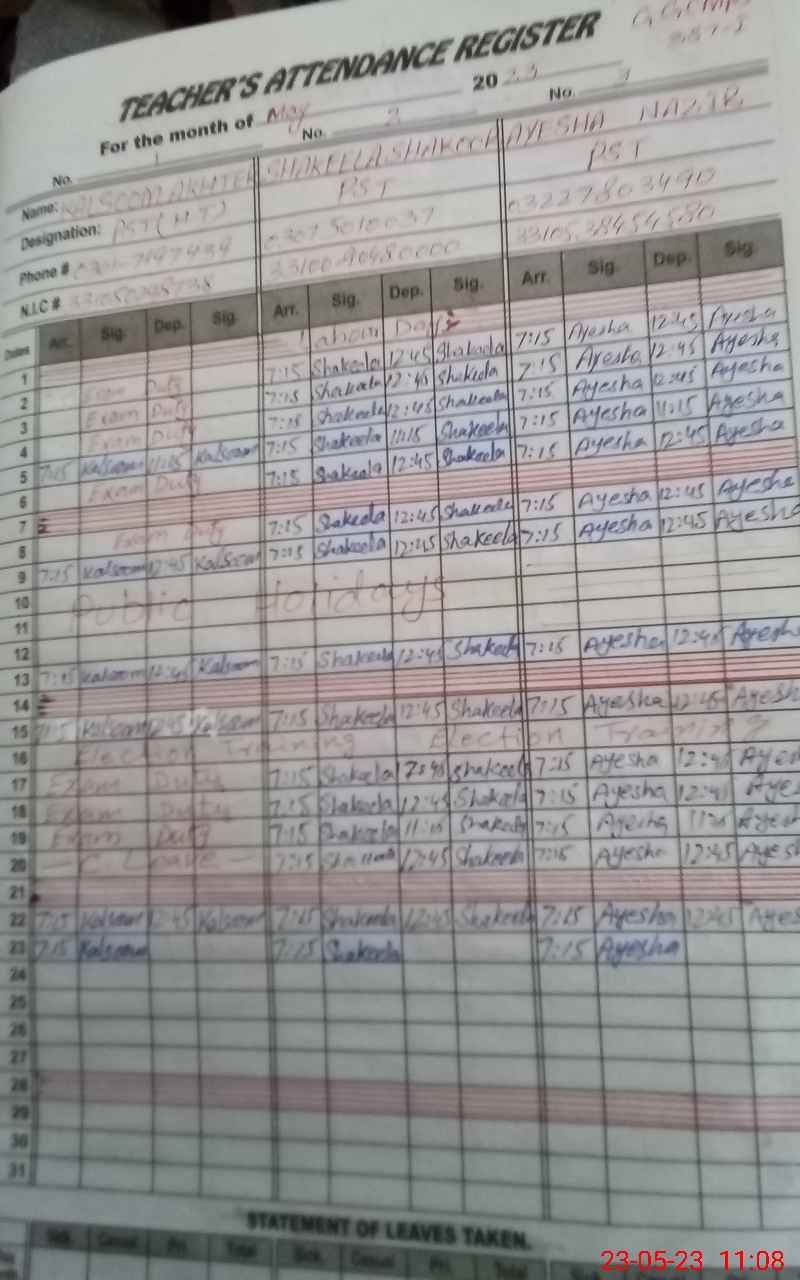 TEACHER'S ATTENDANCE REGISTER
For the month of May 2023
No. 1 No. 2 No. 3
Name: KALSOOM AKHTER SHAKEELA SHAKOOR AYESHA NAZIR
Designation: PST (HT) PST PST
Phone # 03075010037 03227803490
N.I.C #
Dates Arr. Sig. Dep. Sig. Arr. Sig. Dep. Sig. Arr. Sig. Dep. Sig.
1 Labour Day
2 Exam Duty 7:15 Shakeela 12:45 Shakeela 7:15 Ayesha 12:45 Ayesha
3 Exam Duty 7:15 Shakeela 12:45 Shakeela 7:15 Ayesha 12:45 Ayesha
4 Exam Duty 7:15 Shakeela 12:45 Shakeela 7:15 Ayesha 12:45 Ayesha
5 7:15 Kalsoom 11:15 Kalsoom 7:15 Shakeela 11:15 Shakeela 7:15 Ayesha 11:15 Ayesha
6 Exam Duty 7:15 Shakeela 12:45 Shakeela 7:15 Ayesha 12:45 Ayesha
7
8 Exam Duty 7:15 Shakeela 12:45 Shakeela 7:15 Ayesha 12:45 Ayesha
9 7:15 Kalsoom 12:45 Kalsoom 7:15 Shakeela 12:45 Shakeela 7:15 Ayesha 12:45 Ayesha
10
11 Public Holidays
12
13 7:15 Kalsoom 12:45 Kalsoom 7:15 Shakeela 12:45 Shakeela 7:15 Ayesha 12:45 Ayesha
14
15 7:15 Kalsoom 12:45 Kalsoom 7:15 Shakeela 12:45 Shakeela 7:15 Ayesha 12:45 Ayesha
16 Election Training Election Training
17 Exam Duty 7:15 Shakeela 12:45 Shakeela 7:15 Ayesha 12:45 Ayesha
18 Exam Duty 7:15 Shakeela 12:45 Shakeela 7:15 Ayesha 12:45 Ayesha
19 Exam Duty 7:15 Shakeela 11:15 Shakeela 7:15 Ayesha Ayesha
20 C. Leave 7:15 12:45 Shakeela 7:15 Ayesha 12:45 Ayesha
21
22 7:15 Kalsoom 12:45 Kalsoom 7:15 Shakeela 12:45 Shakeela 7:15 Ayesha 12:45 Ayesha
23 7:15 Kalsoom 7:15 Shakeela 7:15 Ayesha
24
25
26
27
28
29
30
31
STATEMENT OF LEAVES TAKEN.
Sick. Casual Pri. Total Sick. Casual Pri. Total
23-05-23 11:08